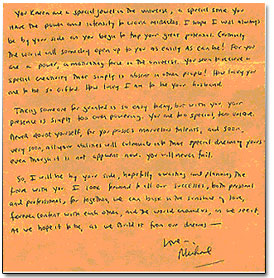 You Karen are a special jewel in the universe, a special one. You
have the power and intensity to work miracles. I hope I will always
be by your side as you begin to tap your great potential. Certainly
the world will someday open up to you as easily as can be! For you
are a power, a motivating force in the universe. You seem to achieve a
special creativity that simply is absent in other people! How lucky you
are to be so gifted. How lucky I am to be your husband.
Taking someone for granted is so easy them, but with you, your
presence is simply too overpowering. You are too special, too unique.
Never doubt yourself, for you possess marvelous talents, and soon,
very soon, all your abilities will culminate into that special dream of yours
even though it is not apparent now. You will never fail.
So, I will be by your side, hopefully, awaiting and planning the
future with you. I look forward to all our successes, both personal
and professional, for together we can bask in the sunshine of love,
forever content with each other, and the world around us, as we see it,
as we hope it to be, as we build it from our dreams —
Love —
Michael